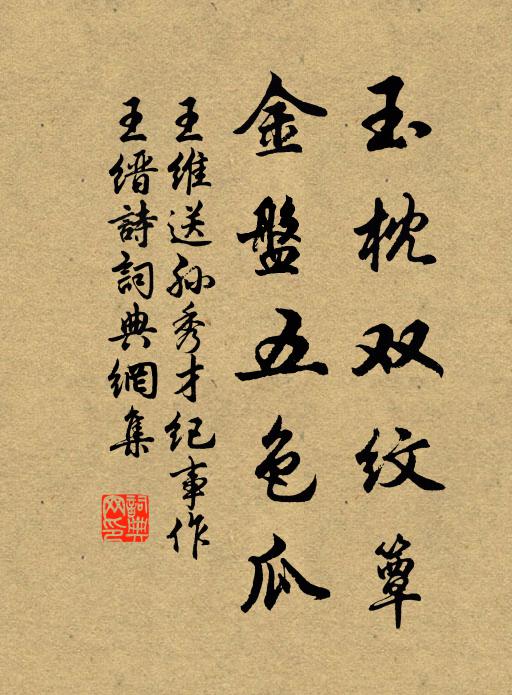 玉枕双纹簟
金盤五色瓜
王维送孙秀才纪事作
王缙詩詞典網集
詞典网印